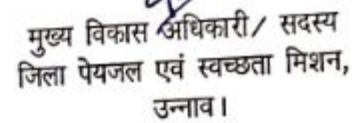 मुख्य विकास अधिकारी/ सदस्य
जिला पेयजल एवं स्वच्छता मिशन,
उन्नाव।